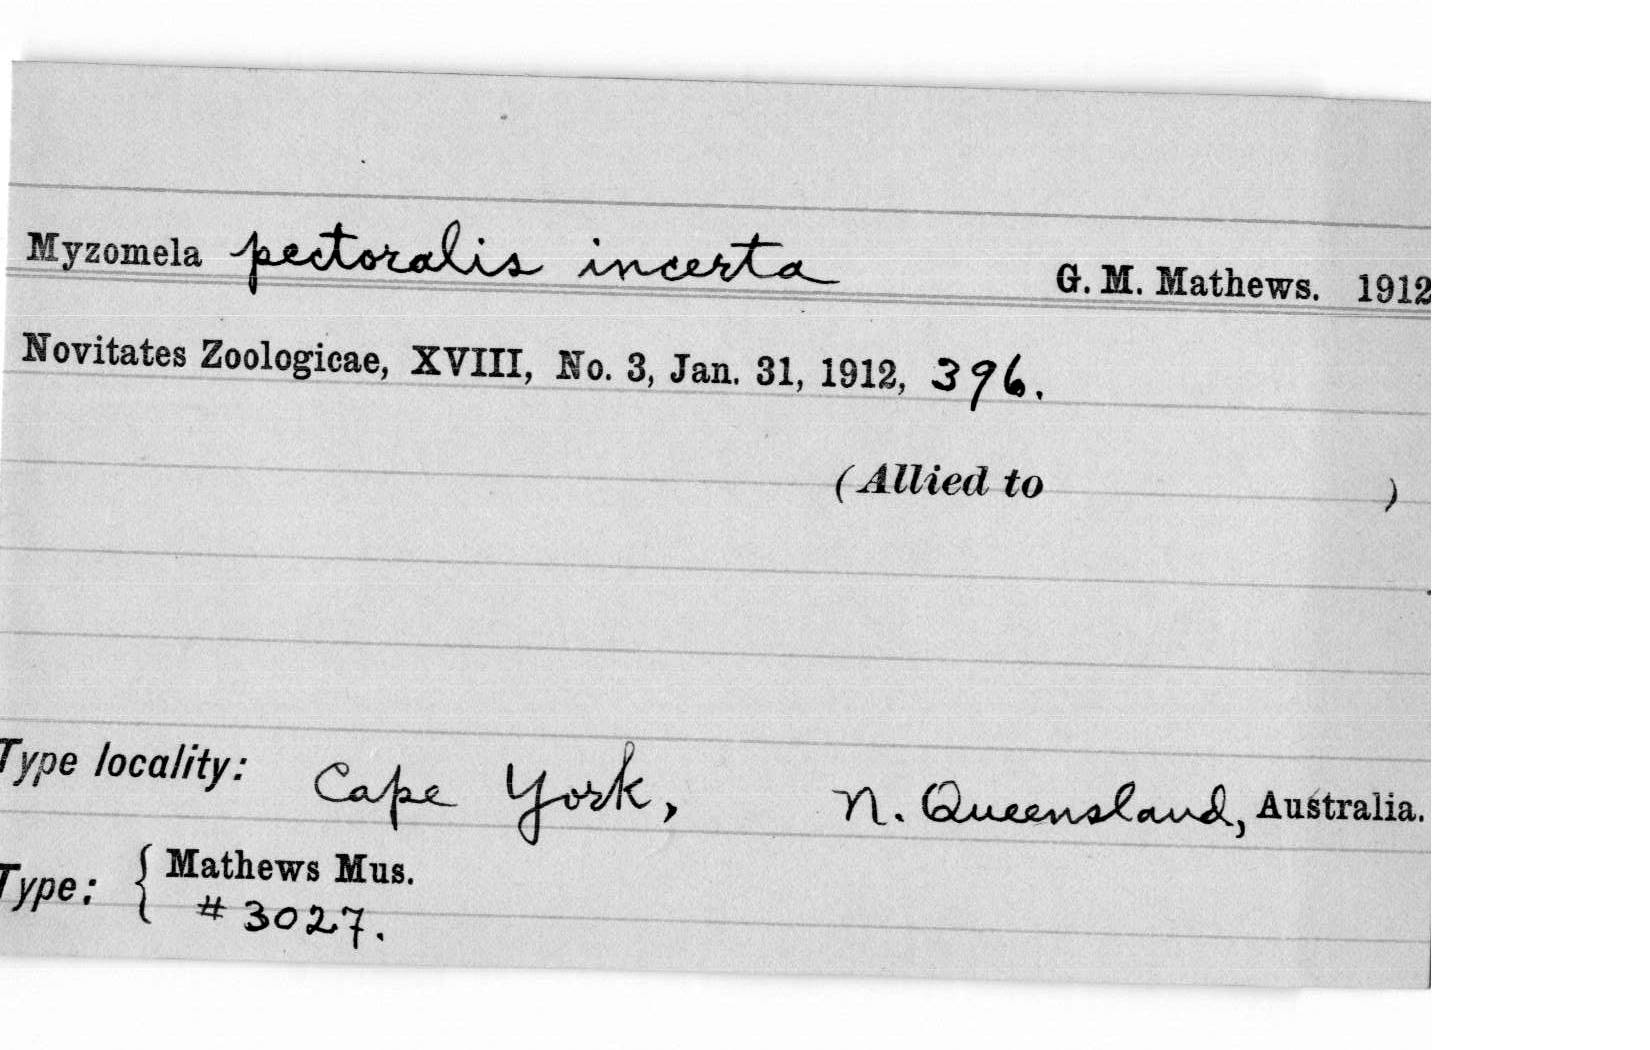 Myzomela pectoralis incerta G. M. Mathews. 1912
Novitates Zoologicae, XVIII, No. 3, Jan. 31, 1912, 396.
(Allied to )
Type locality: Cape York, N. Queensland, Australia.
Type: { Mathews Mus.
# 3027.